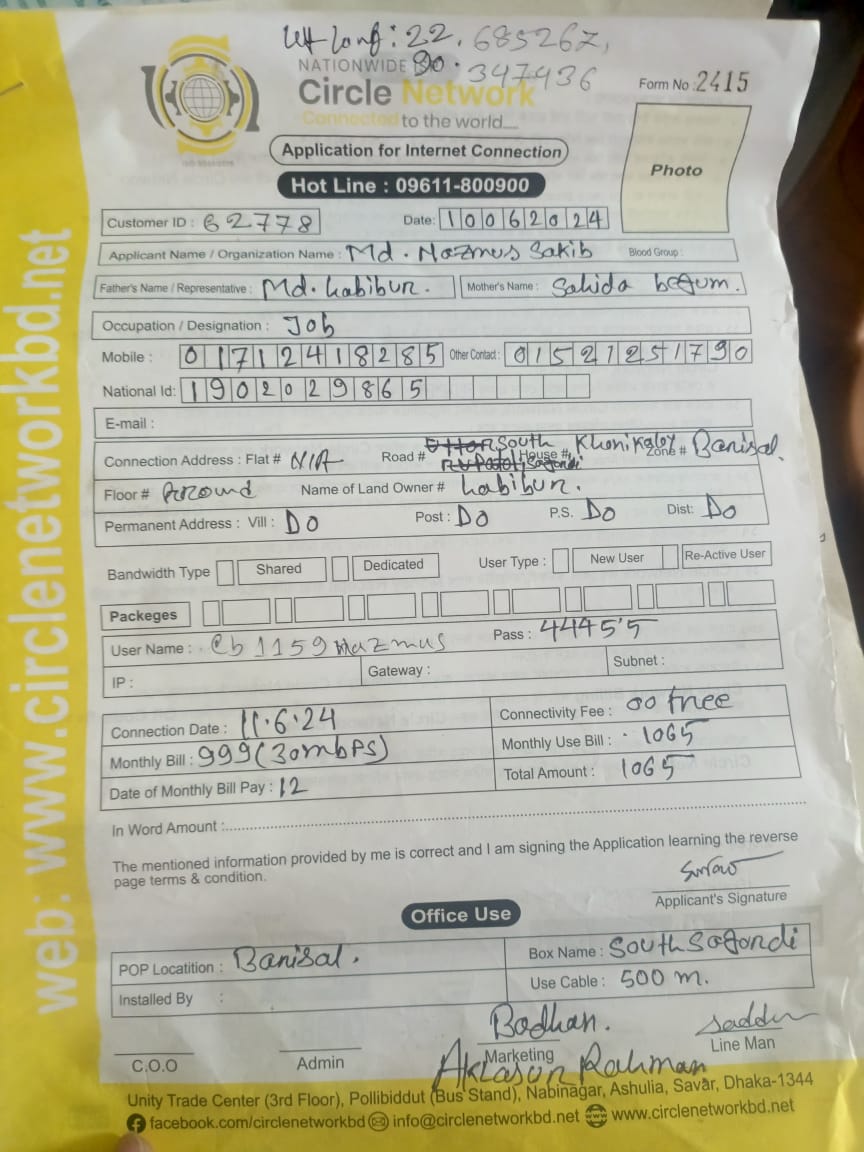 Lat Long: 22.685267,
90.347436
NATIONWIDE
Circle Network
Connected to the world
Form No : 2415
Application for Internet Connection
Photo
Hot Line : 09611-800900
Customer ID : 62778 Date: 10062024
Applicant Name / Organization Name : Md. Nazmus Sakib Blood Group :
Father's Name / Representative : Md. habibur. Mother's Name : Sahida begum.
Occupation / Designation : Job
Mobile : 01712418285 Other Contact : 01521251790
National Id: 1902029865
E-mail :
Connection Address : Flat # N/A Road # South House # Zone # Barisal.
Floor # Ground Name of Land Owner # habibur.
Permanent Address : Vill : DO Post : DO P.S. DO Dist: DO
Bandwidth Type Shared Dedicated User Type : New User Re-Active User
Packeges
User Name : Pass : 44455
IP : Gateway : Subnet :
Connection Date : 11.6.24 Connectivity Fee : 00 free
Monthly Bill : 999 (30mbps) Monthly Use Bill : 1065
Date of Monthly Bill Pay : 12 Total Amount : 1065
In Word Amount :
The mentioned information provided by me is correct and I am signing the Application learning the reverse
page terms & condition.
Applicant's Signature
Office Use
POP Locatition : Barisal. Box Name : South Sagordi
Installed By : Use Cable : 500 m.
Bodhan.
C.O.O Admin Marketing Line Man
Rahman
Unity Trade Center (3rd Floor), Pollibiddut (Bus Stand), Nabinagar, Ashulia, Savar, Dhaka-1344
facebook.com/circlenetworkbd info@circlenetworkbd.net www.circlenetworkbd.net
web: www.circlenetworkbd.net